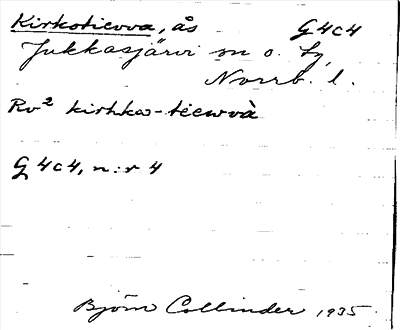 Kirkotieova, ås G4c4
Jukkasjärvi sn o. tg,
Norrb. l.
Rv² kirhko-tiewvà
G4c4, n:r 4
Björn Collinder 1935